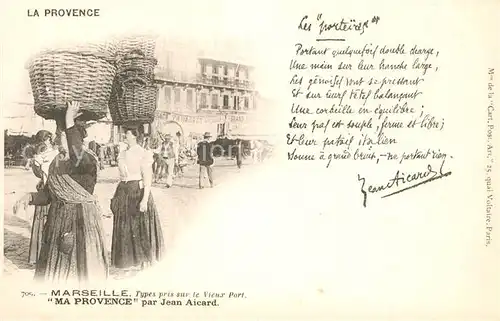 LA PROVENCE
Les "porteïris"
Portant quelquefois double charge,
Une main sur leur hanche large,
Les génoises vont se pressant
Et sur leurs têtes balançant
Une corbeille en équilibre ;
Leur pas est souple, ferme et libre ;
Et leur patois italien
Sonne à grand bruit, — ne portant rien. —
Jean Aicard
Mon de la "Cart. Pop. Art." 25, quai Voltaire, Paris.
700. — MARSEILLE. Types pris sur le Vieux Port.
"MA PROVENCE" par Jean Aicard.